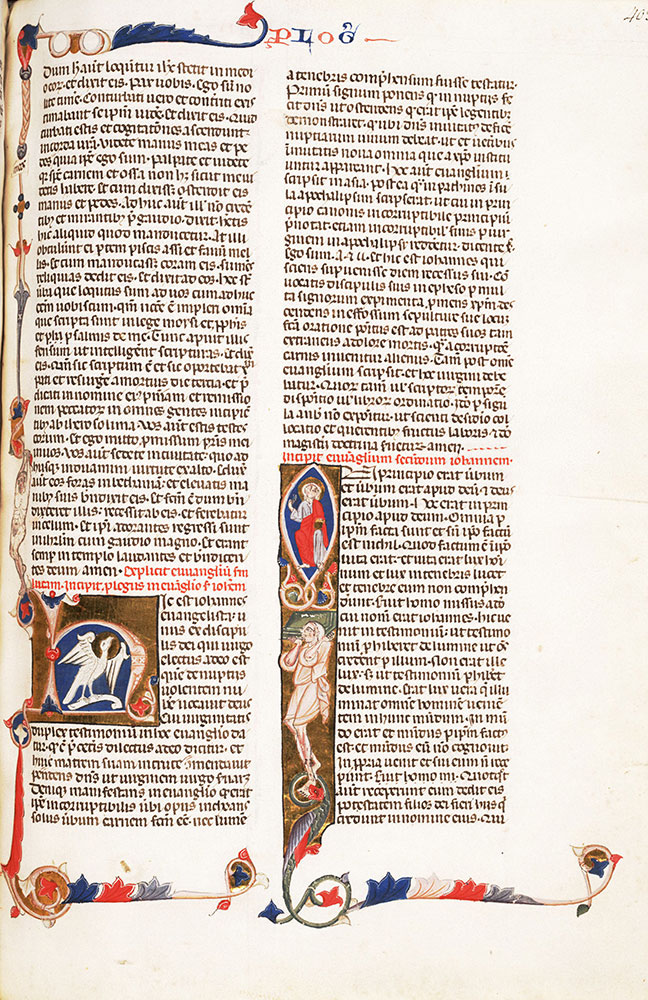 PLOG̃
dum hec loquitur ihc stetit in medi
o eor et dixit eis. Pax vobis. Ego sum no
lite time. Conturbati vero et conterriti exis
timabant se spm videre. et dixit eis. Quid
turbati estis et cogitationes ascendunt
in corda vra. videte manus meas et pe
des quia ipe ego sum. Palpate et videte
qr sps carnem et ossa non ht sicut me vi
detis habere. et cum dixisset ostendit eis
manus et pedes. Adhuc aut ill non creden
tib et mirantib p gaudio. dixit. hetis
hic aliquid quod manducetur. At illi
obtulerunt ei ptem piscis assi et favum mel
lis. et cum manducasset coram eis. sumens
reliquias dedit eis. et dixit ad eos. hec st
vba que locutus sum ad vos cum adhuc
essem vobiscum. qm necce e impleri omnia
que scripta sunt in lege moysi et pphis
et psalmis de me. Tunc apuit illis
sensum ut intelligerent scripturas. et dixit
eis. qm sic scriptum e et sic oportebat xpm
pati et resurge a mortuis die tercia. et p
dicari in nomine ei pniam et remissio
nem peccator in omnes gentes incipien
tib ab iherosolima. vos aut estis testes
horum. et ego mitto pmissum pris mei
in vos. vos aut sedete in civitate quo ad
usq induamini virtute ex alto. eduxit
aut eos foras in bethaniam et elevatis ma
nib suis bndixit eis. et fcm e dum bn
diceret illis. recessit ab eis. et ferebatur
in celum. et ipi adorantes regressi sunt
in ihrlm cum gaudio magno. et erant
semp in templo laudantes et bndicen
tes deum amen. Explicit evvangliu sm
lucam. incipit plogus in evvaglio s iohem
Hic est iohannes
evangelista u
nus ex discipu
lis dei qui virgo
electus a deo est
que de nuptiis
volentem nu
bere vocavit deus
cui virginitatis
duplex testimoniu in hoc evanglio da
tur. q e p cetis dilectus a deo dicitur. et
huic matrem suam in cruce commendavit
pendens dns ut virginem virgo servaret
deniq manifestans in evanglio q erat
ipe incorruptibilis vbi opus inchoans
solus vbum carnem fcm ee. nec lumen
a tenebris comphensum fuisse testatur.
Primum signum ponens q in nuptiis fe
cit dns ut ostendens q erat ipe legentibus
demonstraret. q ubi dns invitatus deficere
nuptiarum vinum debeat. ut et veteribus
immutatis nova omnia que a xpo instituu
untur appareant. hoc aut evanglium
scripsit in asia. postea q in pathmos insu
la apocalipsim scripserat. ut cui in prin
cipio canonis incorruptibile principium
pnotat. etiam incorruptibilis finis p vir
ginem in apocalipsi redderetur dicente
Ego sum. A. et ω. et hic est iohannes qui
sciens supvenisse diem recessus sui. Con
vocatis discipulis suis in epheso p mul
ta signorum experimenta pmens xpm. des
cendens in defossum sepulture sue locum
facta oratione positus est ad patres suos. tam
extraneus a dolore mortis. q a corruptione
carnis invenitur alienus. Tam post omnes
evanglium scripsit. et hoc virgini debe
batur. Quor tam vl scriptor tempore
dispositio vl libror ordinatio. ido p singu
la a nob non exponitur. ut sciendi desiderio col
locato et querentib fructus laboris et do
magistii doctrina servetur. amen.
incipit evvaglium secundum iohannem.
In principio erat vbum
et vbum erat apud deum et deus
erat vbum. hoc erat in prin
cipio apud deum. Omnia p
ipm facta sunt et sn ipo factu
est nichil. Quod factum e in ipo
vita erat. et vita erat lux ho
minum et lux in tenebris lucet
et tenebre eum non comphen
derunt. fuit homo missus a do
cui nomen erat iohannes. hic ve
nit in testimonium. ut testimo
nium phiberet de lumine. ut oms
crederent p illum. Non erat ille
lux. s ut testimonium phiberet
de lumine. Erat lux vera q illu
minat omnem hominem venien
tem in hunc mundum. In mu
do erat et mundus p ipm factus
est. et mundus eum no cognovit.
In ppria venit et sui eum n rece
perunt. fuit homo mi. Quotqt
aut receperunt eum dedit eis
potestatem filios dei fieri hiis q
credunt in nomine eius. Qui